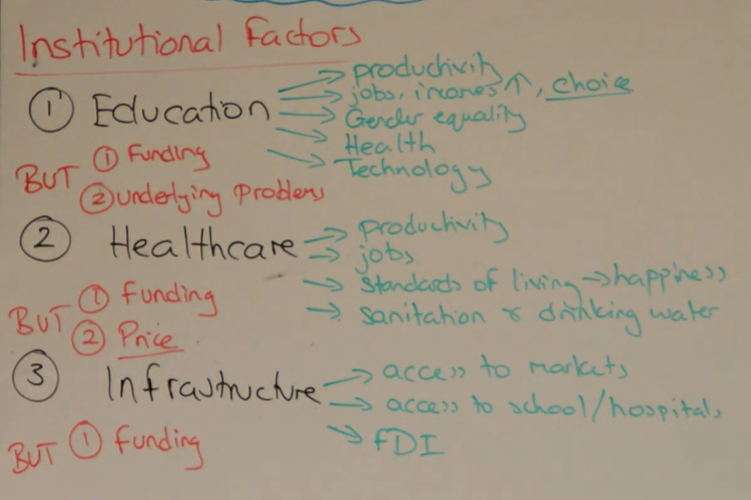 Institutional Factors
① Education → productivity
→ jobs, incomes ↑, choice
→ Gender equality
→ Health
→ Technology
BUT ① Funding
② underlying problems
② Healthcare → productivity
→ jobs
→ standards of living → happiness
→ sanitation & drinking water
BUT ① Funding
② Price
③ Infrastructure → access to markets
→ access to school/hospitals
→ FDI
BUT ① Funding